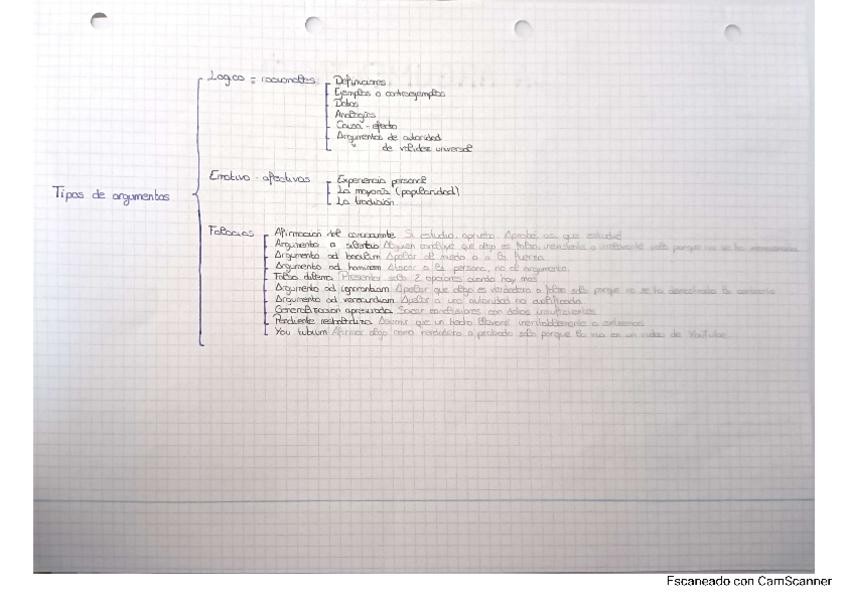 Tipos de argumentos
Logico = racionales
Definiciones
Ejemplos o contraejemplos
Datos
Analogías
Causa - efecto
Argumentos de autoridad
" de validez universal
Emotivo - afectivos
Experiencia personal
La mayoría (popularidad)
La tradición
Falacias
Afirmación del consecuente Si estudio, apruebo. Aprobé, así que estudié
Argumento a silentio Alguien concluye que algo es falso, inexistente o irrelevante solo porque no se ha mencionado
Argumento ad baculum Apelar al miedo o a la fuerza
Argumento ad hominem Atacar a la persona, no al argumento.
Falso dilema Presentar solo 2 opciones cuando hay más
Argumento ad ignorantiam Apelar que algo es verdadero o falso solo porque no se ha demostrado lo contrario
Argumento ad verecundiam Apelar a una autoridad no cualificada
Generalización apresurada Sacar conclusiones con datos insuficientes
Pendiente resbaladiza Asumir que un hecho llevará inevitablemente a
You tubium Afirmar algo como verdadero o probado solo porque lo vio en un vídeo de YouTube
Escaneado con CamScanner